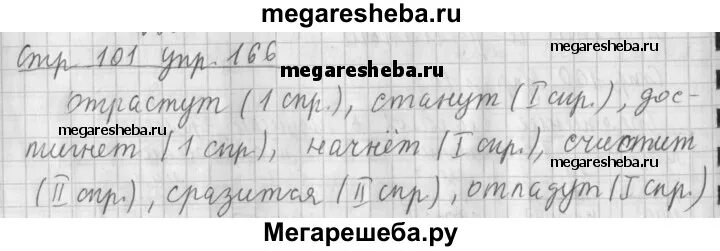 megaresheba.ru
megaresheba.ru
Стр 101 упр. 166
megaresheba.ru
отрастут (1 спр.), станут (I спр.), дос-
megaresheba.ru
тигнет (1 спр.), начнёт (I спр.), счистит
megaresheba.ru
(II спр.), сразится (II спр.), отпадут (I спр.)
Мегарешеба.ру